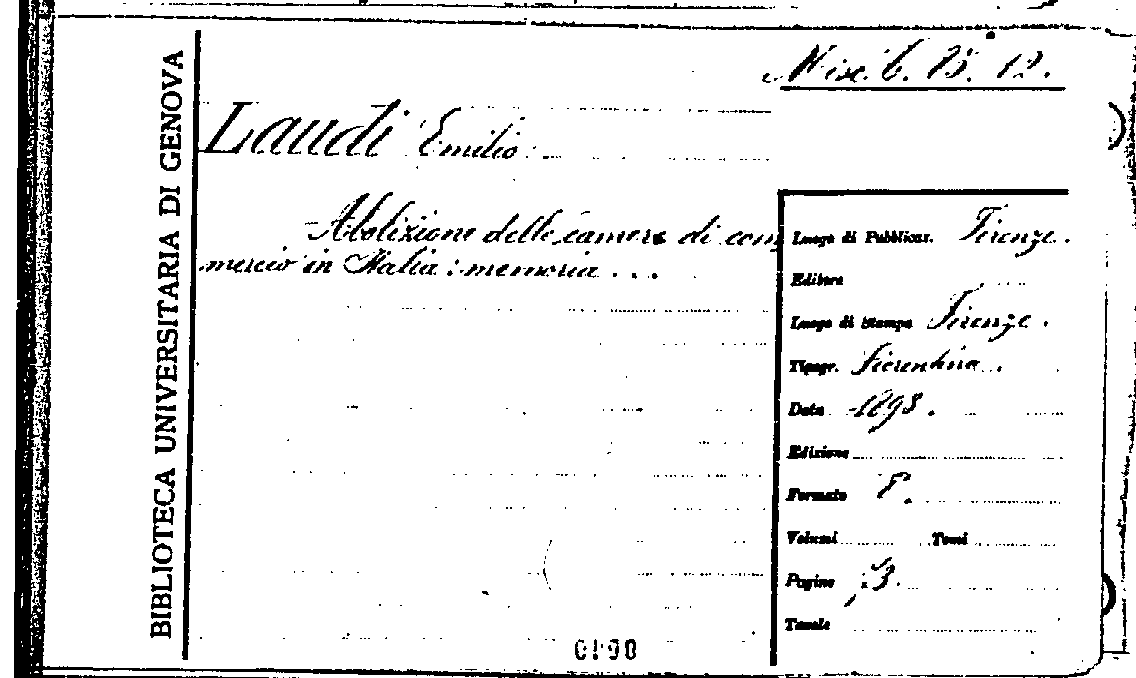 BIBLIOTECA UNIVERSITARIA DI GENOVA
Misc. b. 15. 12.
Laudi Emilio
Abolizione delle camere di com
mercio in Italia : memoria ...
Luogo di Pubblicaz. Firenze.
Editore
Luogo di Stampa Firenze.
Tipogr. Fiorentina.
Data 1898.
Edizione
Formato 8°.
Volumi Tomi
Pagine 13.
Tavole